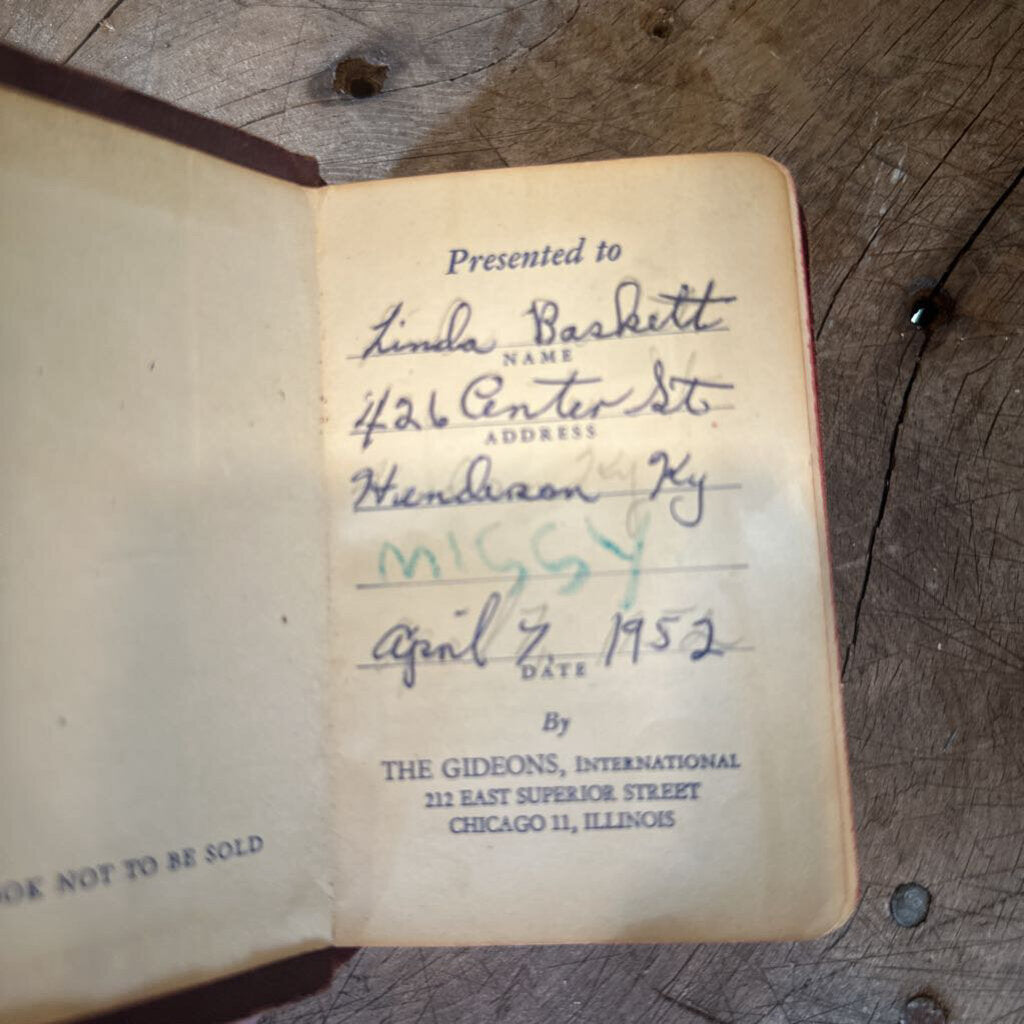 Presented to
Linda Baskett
NAME
426 Center St
ADDRESS
Henderson Ky
MISSY
April 7, 1952
DATE
By
THE GIDEONS, INTERNATIONAL
212 EAST SUPERIOR STREET
CHICAGO 11, ILLINOIS
NOT TO BE SOLD